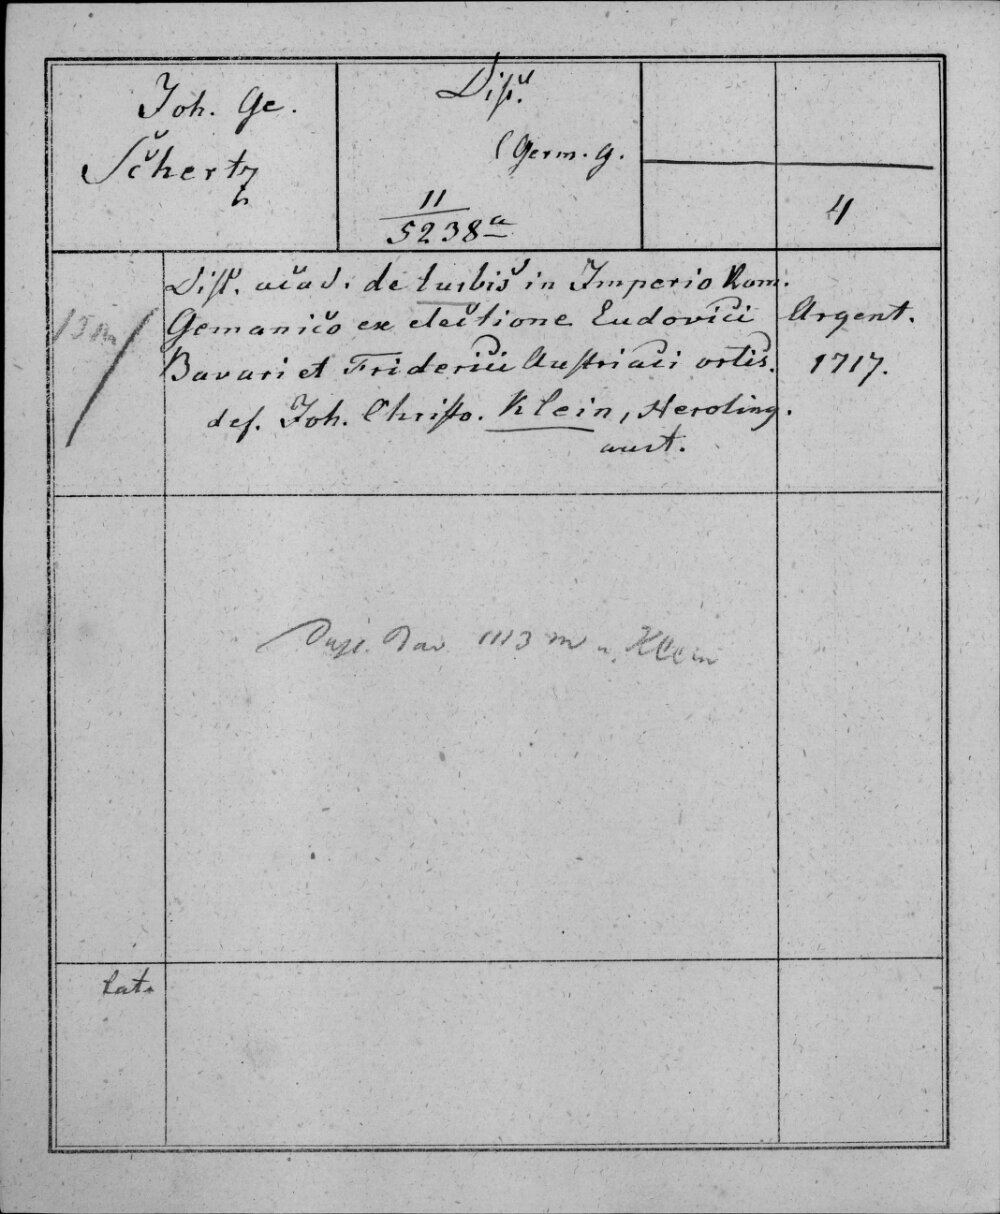 Joh. Ge.
Schertz
Diss.
(Germ. g.
11
5238a
4
Diss. acad. de turbis in Imperio Rom.
Gemanico ex electione Ludovici
Bavari et Friderici Austriaci ortis.
def. Joh. Christo. Klein, Heroling.
aust.
Argent.
1717.
1113 m Klein
lat.